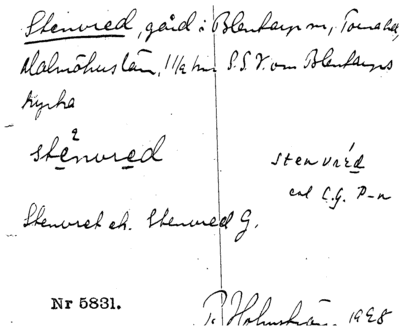 Stenvred, gård i Blentarp sn, Torna hd,
Malmöhus län, 1 1/2 km S.S.V. om Blentarps
kyrka
2
stènvred
stenvréd
enl. C.G. P-n
Stenvret el. Stenvred G.
Nr 5831.
1928